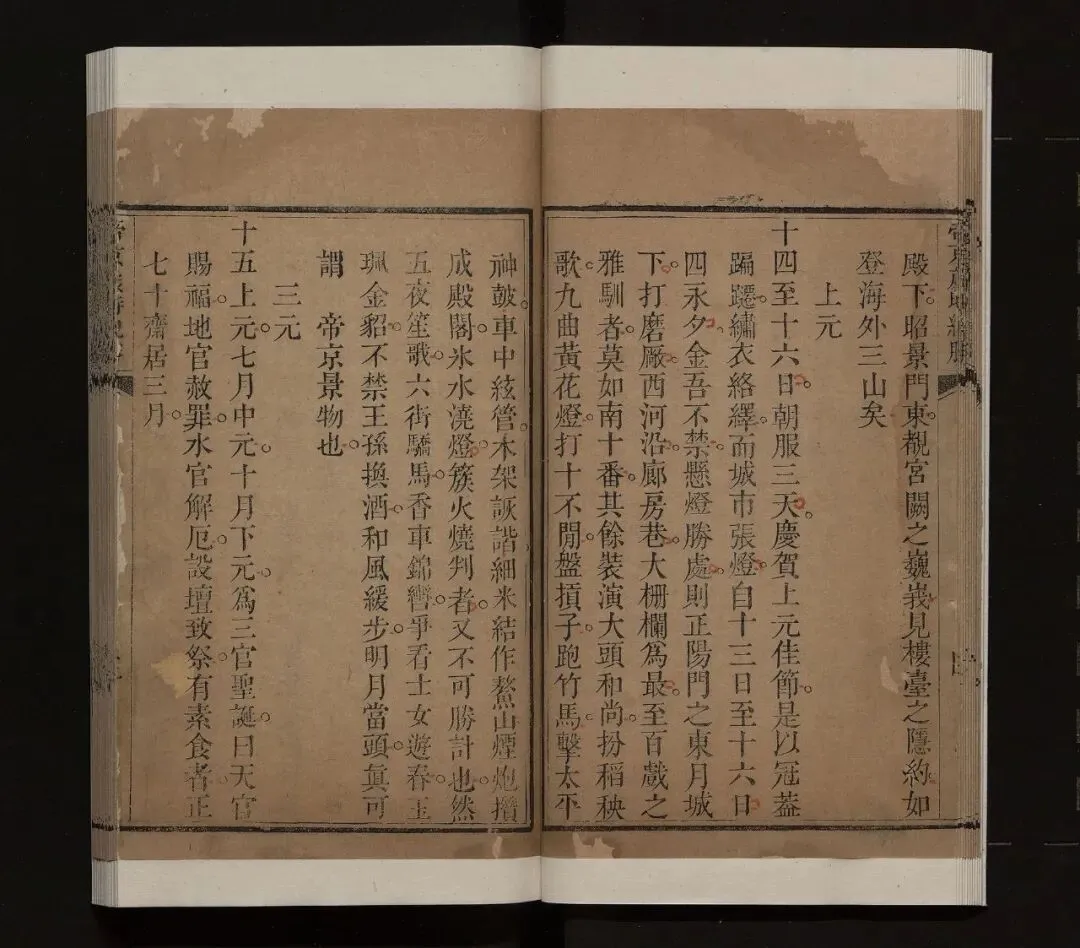 殿下昭景門東覩宮闕之巍峩見樓臺之隱約如
登海外三山矣
上元
十四至十六日朝服三天慶賀上元佳節是以冠蓋
蹁躚繡衣絡繹而城市張燈自十三日至十六日
四永夕金吾不禁懸燈勝處則正陽門之東月城
下打磨厰西河沿廊房巷大栅欄爲最至百戲之
雅馴者莫如南十番其餘裝演大頭和尚扮稻秧
歌九曲黃花燈打十不閒盤摃子跑竹馬擊太平
神皷車中絃管木架詼諧細米結作鰲山煙炮攢
成殿閣氷水澆燈簇火燒判者又不可勝計也然
五夜笙歌六街驕馬香車錦轡爭看士女遊春玉
珮金貂不禁王孫換酒和風緩步明月當頭眞可
謂 帝京景物也
三元
十五上元七月中元十月下元爲三官聖誕曰天官
賜福地官赦罪水官解厄設壇致祭有素食者正
七十齋居三月